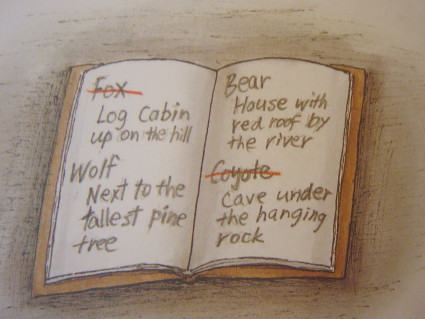 Fox
Log Cabin
up on the hill
Wolf
Next to the
tallest pine
tree
Bear
House with
red roof by
the river
Coyote
Cave under
the hanging
rock